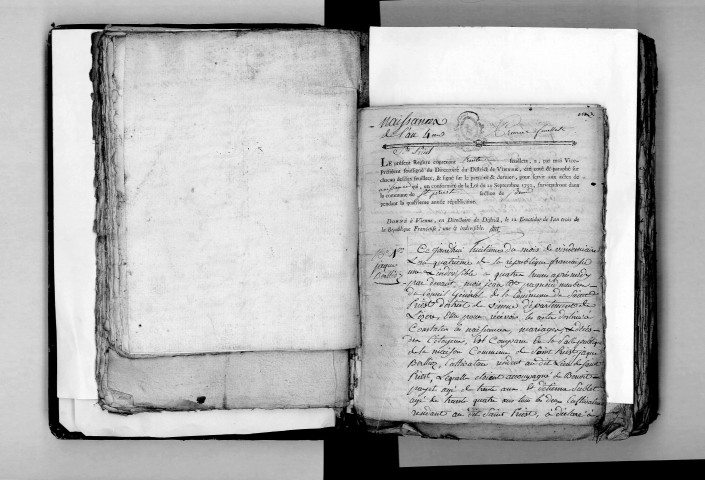 naissances
de l'an 4me
St Priest
LE présent Registre contenant feuillets, a, par moi Vice-
Président soussigné du Directoire du District de VIENNE, été coté & paraphé sur
chacun desdits feuillets, & signé sur le premier & dernier, pour servir aux actes de
naissance qui, en conformité de la Loi du 20 Septembre 1792, surviendront dans
la commune de St priest section de
pendant la quatrieme année républicaine.
Décerné à Vienne, en Directoire du District, le 12 Fructidor de l'an trois de
la République Française, une & indivisible.
No 1er
jaques
Berlioz
Ce jourdhui huitieme du mois de vendemiaire
L'an quatrieme de la république francaise
une & indivisible a quatre heures apres midy
par devant moi jean membre
du Conseil General de la Commune de Saint
Priest district de vienne département de
L'izere, Elu pour recevoir les actes destinés a
Constater les naissances, mariages & décès
des Citoyens, Est Comparu en la salle publique
de la maison Commune de Saint Priest jaques
Berlioz, Cultivateur résidant au dit Lieu de Saint
Priest, Lequel etoient accompagné de Benoit
agé de trente ans & etienne
agé de trente quatre ans tous les deux Cultivateurs
residant au dit Saint Priest, a déclaré à